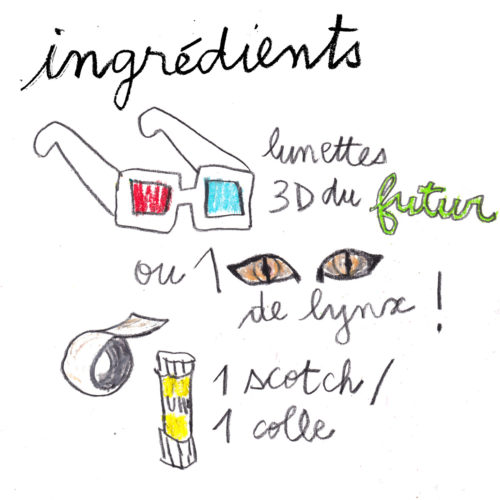 ingrédients
lunettes
3D du futur
ou 1
de lynx !
UHU
1 scotch /
1 colle